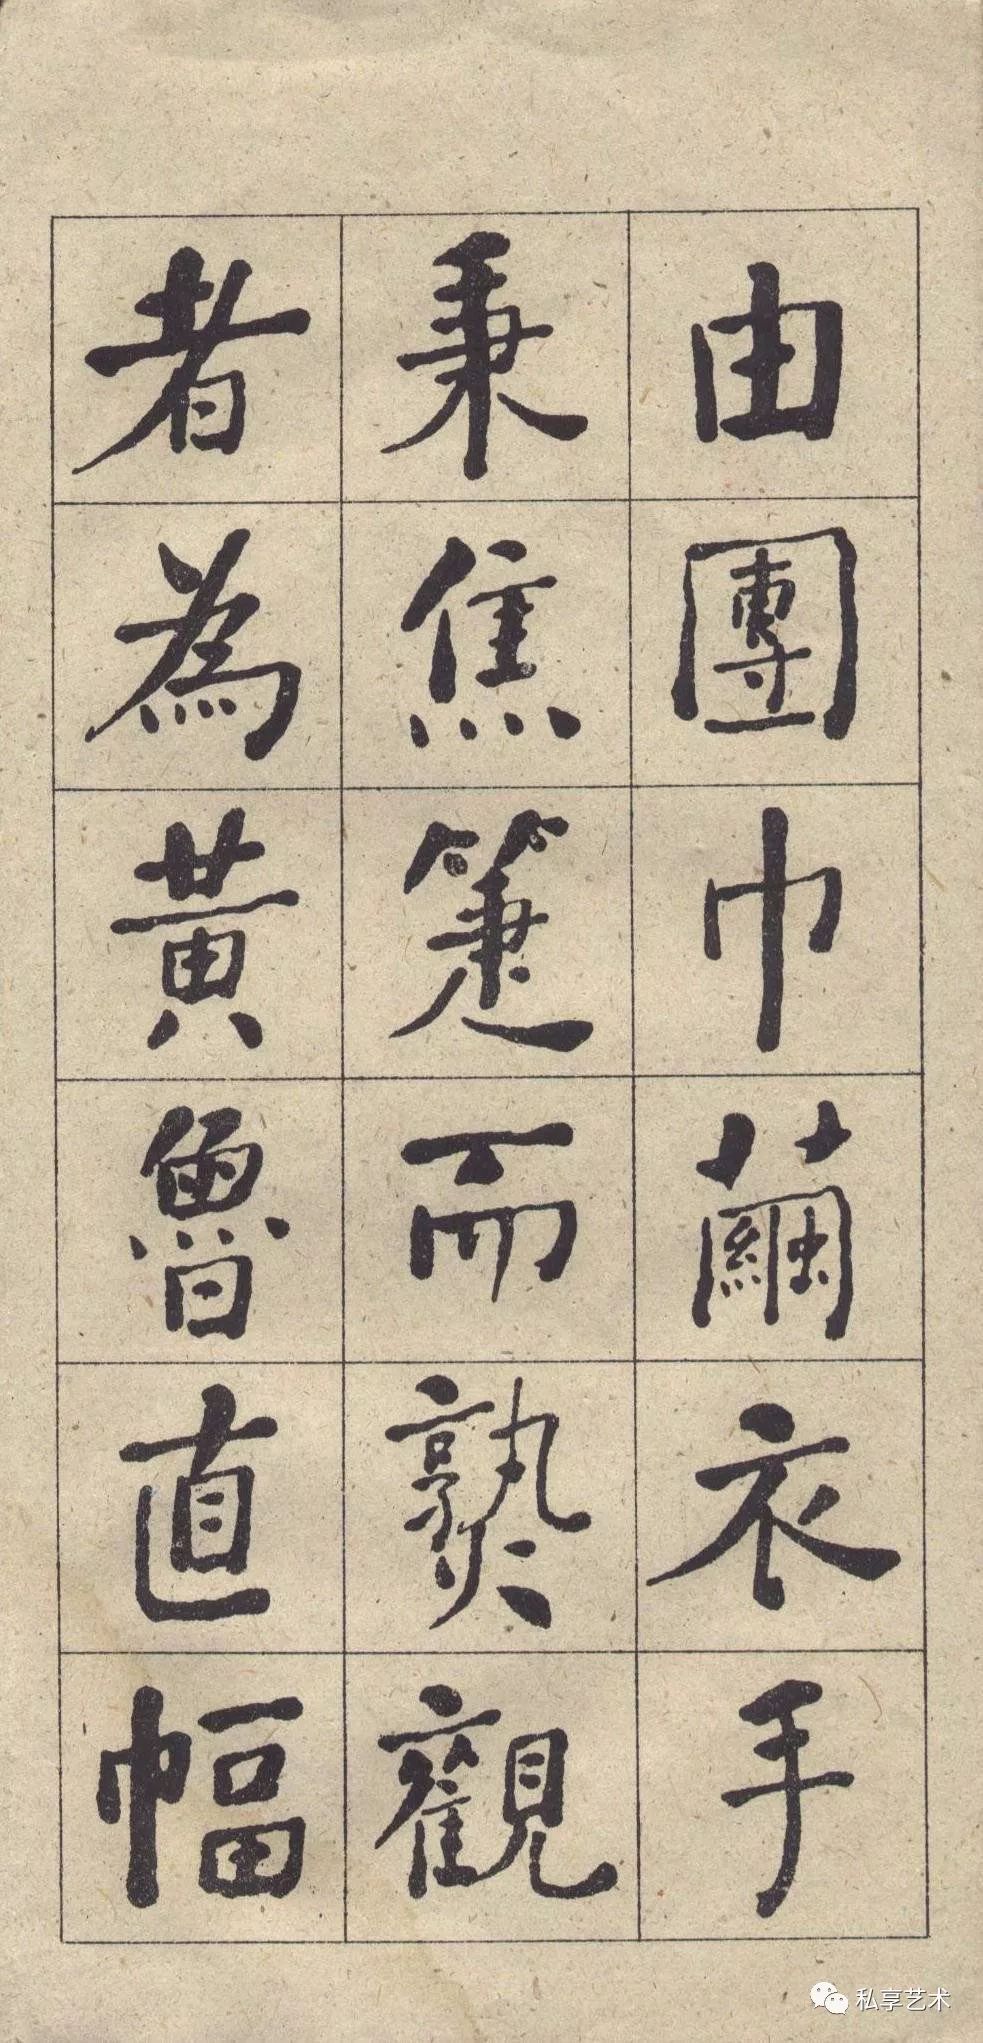 由團巾繭衣手
秉焦箑而熟觀
者為黃魯直幅
私享艺术